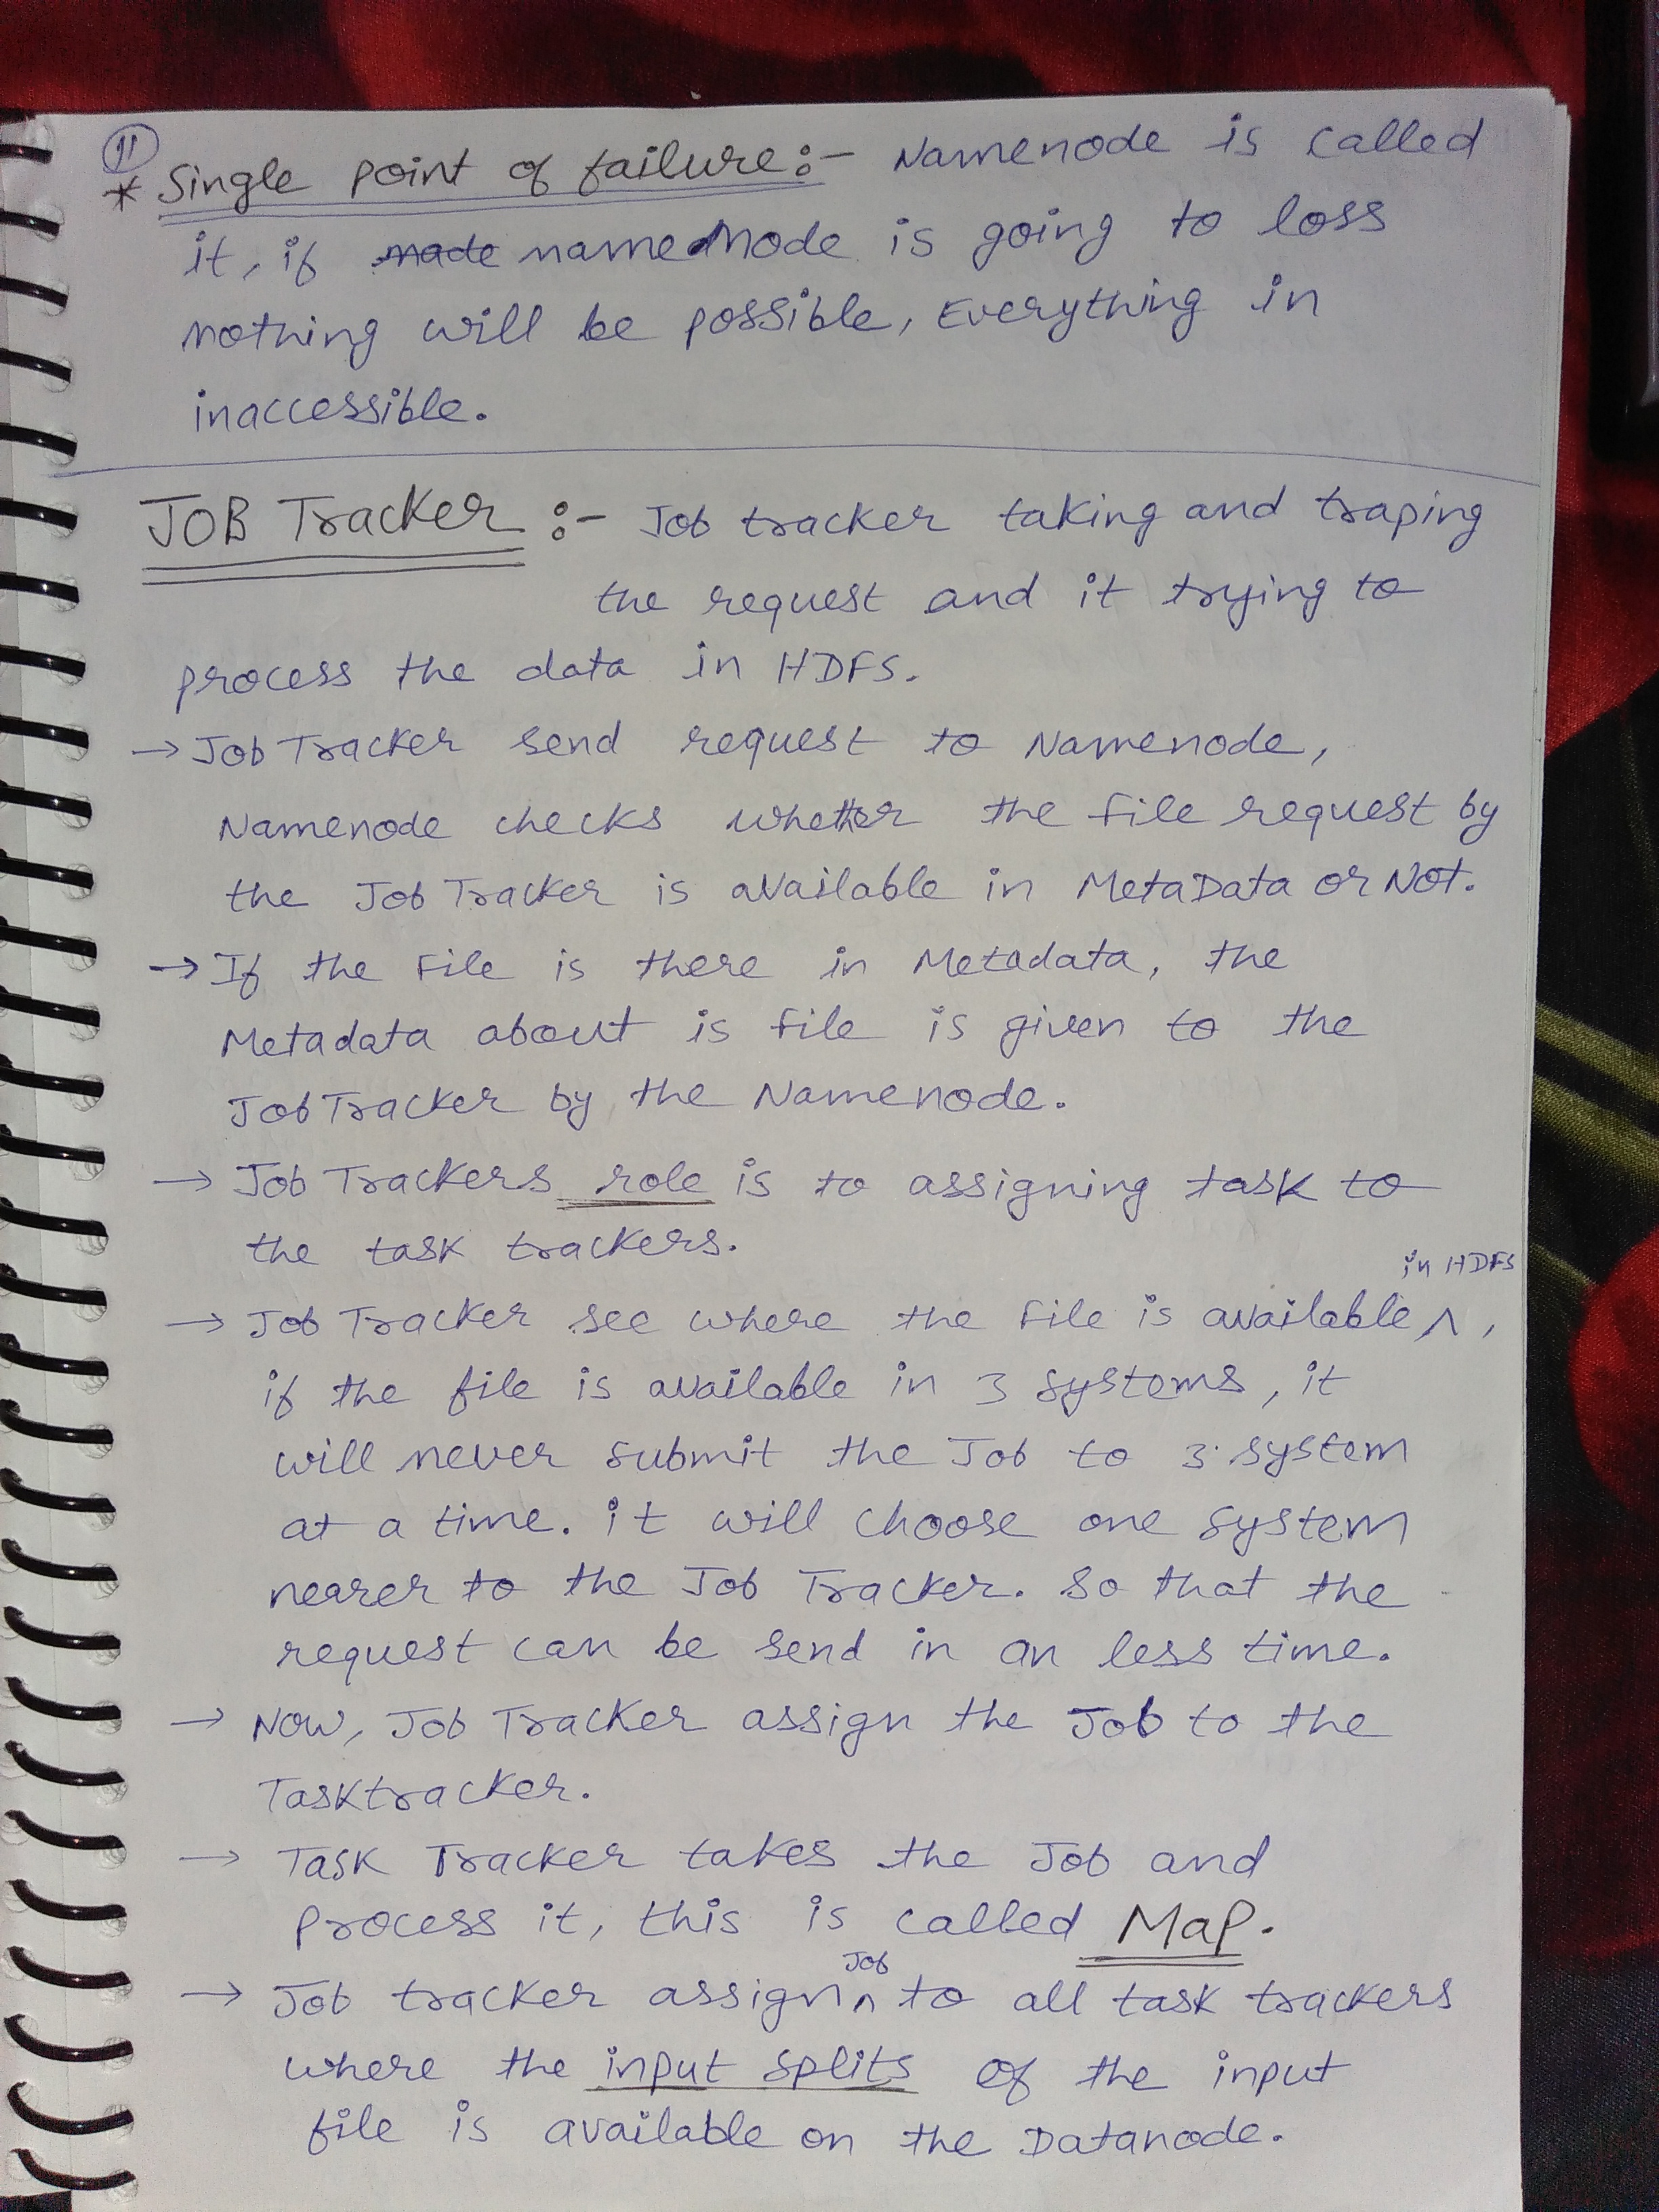 11
* Single point of failure:- Namenode is called
it, if made namednode is going to loss
nothing will be possible, Everything in
inaccessible.
JOB Tracker :- Job tracker taking and traping
the request and it trying to
process the data in HDFS.
→ Job Tracker send request to Namenode,
Namenode checks whether the file request by
the Job Tracker is available in MetaData or Not.
→ If the File is there in Metadata, the
Metadata about is file is given to the
JobTracker by the Namenode.
→ Job Trackers role is to assigning task to
the task trackers.
in HDFS
→ Job Tracker see where the File is available ^,
if the file is available in 3 systems, it
will never submit the Job to 3 system
at a time. it will choose one system
nearer to the Job Tracker. so that the
request can be send in an less time.
→ Now, Job Tracker assign the Job to the
Tasktracker.
→ Task Tracker takes the Job and
process it, this is called Map.
Job
→ Job tracker assign ^ to all task trackers
where the input splits of the input
file is available on the Datanode.